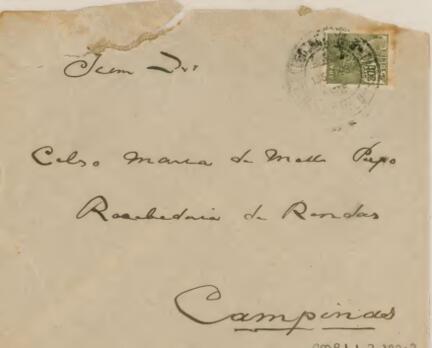 Celso Maria de Mello Pupo
Recebedoria de Rendas
Campinas